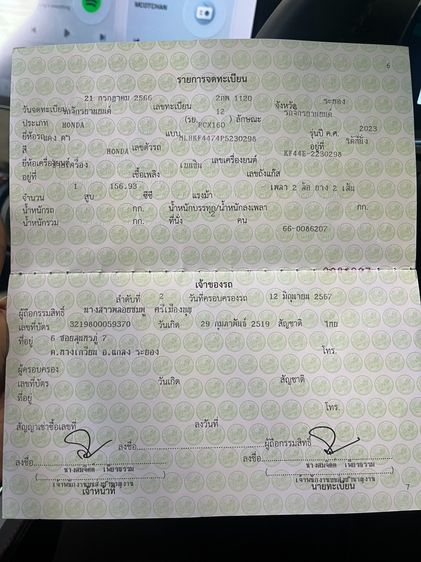 MOSTCHAN
6
รายการจดทะเบียน
วันจดทะเบียน 21 กรกฎาคม 2566 เลขทะเบียน 2กผ 1120 จังหวัด ระยอง
ประเภท รถจักรยานยนต์ (รย. 12 ) ลักษณะ รถจักรยานยนต์
ยี่ห้อรถ HONDA แบบ PCX160 รุ่นปี ค.ศ. 2023
สี แดง ดำ เลขตัวรถ MLHKF4474P5230298 อยู่ที่
ยี่ห้อเครื่องยนต์ HONDA เลขเครื่องยนต์ KF44E-2230298
อยู่ที่ เชื้อเพลิง เบนซิน เลขถังแก๊ส
จำนวน 1 สูบ 156.93 ซีซี แรงม้า เพลา 2 ล้อ ยาง 2 เส้น
น้ำหนักรถ กก. น้ำหนักบรรทุก/น้ำหนักลงเพลา กก.
น้ำหนักรวม กก. ที่นั่ง 2 คน
66-0086207
เจ้าของรถ
ลำดับที่ 2 วันที่ครอบครองรถ 12 มิถุนายน 2567
ผู้ถือกรรมสิทธิ์ นางสาวพลอยชมพู ศรีเมืองบุญ
เลขที่บัตร 3219800059370 วันเกิด 29 กุมภาพันธ์ 2519 สัญชาติ ไทย
ที่อยู่ 6 ซอยสุนทรภู่ 7
ต.ทางเกวียน อ.แกลง ระยอง โทร.
ผู้ครอบครอง
เลขที่บัตร วันเกิด สัญชาติ
ที่อยู่
โทร.
สัญญาเช่าซื้อเลขที่ ลงวันที่
ลงชื่อ ผู้ถือกรรมสิทธิ์
ลงชื่อ ลงชื่อ
เจ้าหน้าที่ นายทะเบียน
7